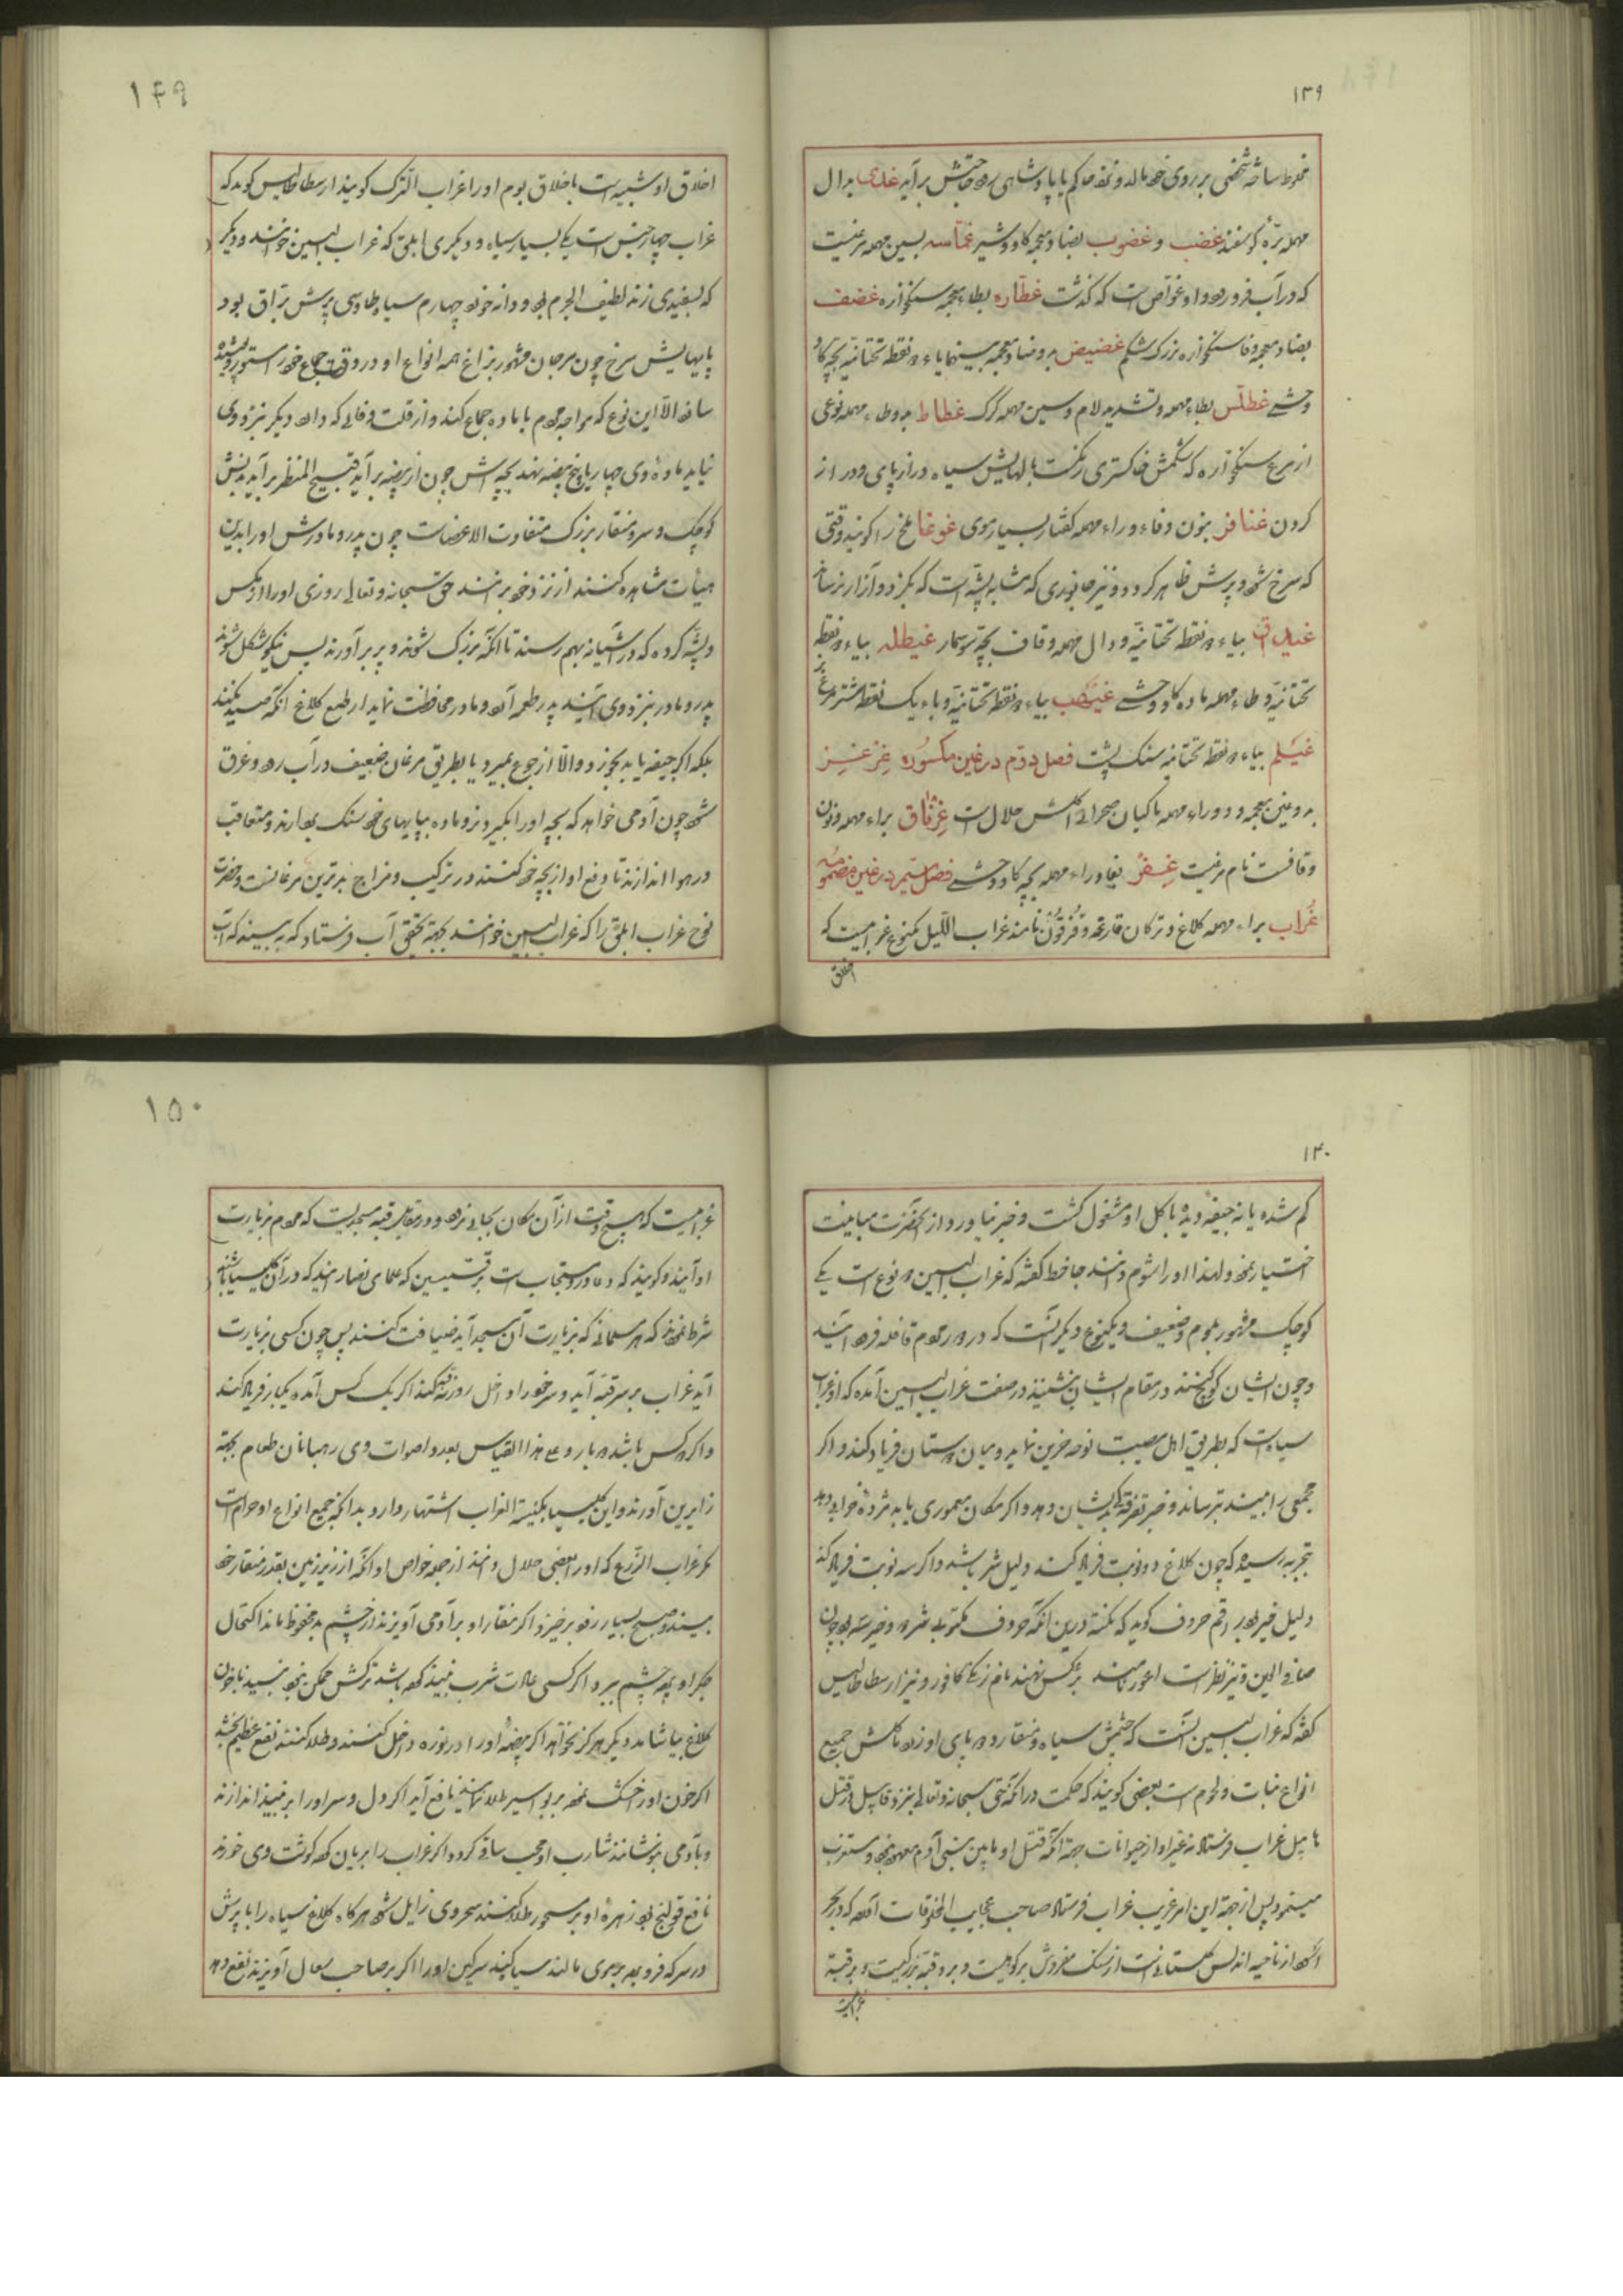 ۱۳۹
مخلوط ساخته شخصی بر روی خود مالد و نزد حاکم یا پادشاهی رود حاجتش برآید غذی بدال
مهمله بره گوسفند غضب و غضوب بضاد معجمه گاو و شیر غماسه بسین مهمله مرغیست
که در آب فرو رود و او غواص است که گذشت غطاره بطاء معجمه سنگخواره غضف
بضاد معجمه و فا سنگخواره بزرگ شکم غضیض بدو ضاد معجمه بینهما یاء دو نقطه تحتانیه بچه گاو
وحشی غطلس بطاء مهمله و تشدید لام و سین مهمله گرگ غطاط بدو طاء مهمله نوعی
از مرغ سنگخواره که شکمش خاکستری رنگست بالهایش سیاه دراز پای و دراز
گردن غنافر بنون و فاء و راء مهمله کفتار بسیار موی غوغا ملخ را گویند وقتی
که سرخ شود و پرش ظاهر گردد و نیز جانوری که مشابه پشه است که بگزد و آزار نرساند
غیداق بیاء دو نقطه تحتانیه و دال مهمله و قاف بچه سوسمار غیطله بیاء دو نقطه
تحتانیه و طاء مهمله ماده گاو وحشی غیهب بیاء دو نقطه تحتانیه و باء یک نقطه شتر مرغ نر
غیلم بیاء دو نقطه تحتانیه سنگ پشت فصل دوم در غین مکسوره غرغر
بدو غین معجمه و دو راء مهمله ماکیان صحرائی گوشتش حلال است غرناق براء مهمله و نون
و قافست نام مرغیست غفر بفا و راء مهمله بچه گاو وحشی فصل سیم در غین مضمومه
غراب براء مهمله کلاغ و ترکان قارغه و قزقون نامند غراب اللیل یکنوع غرابیست که
اخلاق
۱۴۹
اخلاق او شبیه است باخلاق بوم او را غراب الترک گویند ارسطاطالیس گوید که
غراب چهار جنس است یکی بسیار سیاه و دیگری ابلق که غراب البین خوانند و دیگر
که بسفیدی زند لطیف الجرم بود و دانه خورد چهارم سیاه طاوسی پرش براق بود
پایهایش سرخ چون مرجان مشهور بزاغ همه انواع او در وقت جماع خود را مستور و پوشیده
سازد الا این نوع که مواجه مردم با ماده جماع کند و از قلت وفائی که دارد دیگر نزد وی
نیاید ماده وی چهار یا پنج بیضه نهد بچه اش چون از بیضه برآید قبیح المنظر برآید بدنش
کوچک و سر و منقار بزرگ متفاوت الاعضاست چون پدر و مادرش او را بدین
هیأت مشاهده کنند از نزد خود برانند حق سبحانه و تعالی روزی او را از مگس
و پشه کرده که در آشیانه بهم رسند تا آنکه بزرگ شوند و پر برآورند پس نیکو شکل شوند
پدر و مادر نزد وی آیند پدر طعمه آرد و مادر محافظت نماید از طبع کلاغ آنکه صید نکند
بلکه اگر جیفه یابد بخورد و والا از جوع بمیرد یا بطریق مرغان ضعیف در آب رود و غرق
شود چون آدمی خواهد که بچه او را بگیرد نر و ماده بپایهای خود سنگ بردارند و متعاقب
در هوا اندازند تا دفع او از بچه خود کنند در ترکیب و مزاج بدترین مرغانست و حضرت
نوح غراب ابلق را که غراب البین خوانند بجهة تحقیق آب فرستاد که به بیند که آب
۱۴۰
کم شده یا نه جیفه دیده باکل او مشغول گشت و خبر نیاورد از آنحضرت مباینت
اختیار نمود و لهذا او را شوم دانند جاحظ گفته که غراب البین دو نوع است یکی
کوچک مشهور بلوم و ضعیف و یکنوع دیگر آنست که در دور مردم قافله فرود آیند
و چون ایشان کوچ کنند در مقام ایشان نشیند در صفت غراب البین آمده که او غراب
سیاه است که بطریق اهل مصیبت نوحه حزین نماید و میان دوستان فریاد کند و اگر
جمعی را بیند بترساند و خبر تفرقه بدیشان دهد و اگر مکان معموری یابد مژده خرابی دهد
بتجربه رسیده که چون کلاغ دو نوبت فریاد کند دلیل شر باشد و اگر سه نوبت فریاد کند
دلیل خیر بود راقم حروف گوید که نکته درین آنکه حروف مکتوبی شر دو و خیر سه بود چون
صافی العین و تیز نظر است اعور نامند بر عکس نهند نام زنگی کافور و نیز ارسطاطالیس
گفته که غراب البین آنست که چشمش سیاه و منقار و دو پای او زرد مأکلش جمیع
انواع نبات و لحوم است بعضی گویند که حکمت در آنکه حق سبحانه و تعالی بنزد قابیل در قتل
هابیل غراب فرستاد نه غیر او از حیوانات جهة آنکه قتل او مابین بنی آدم معهود نبود و مستغرب
مینمود پس از جهة این امر غریب غراب فرستاد صاحب عجایب المخلوقات آورده که در بحر
اسود از ناحیه اندلس کلیسائیست از سنگ مفروش بر کوهیست و بر وی قبه بزرگیست و بر قبه
غرابیست
۱۵۰
غرابیست که هیچوقت از آن مکان بجائی نرود و در مقابل قبه مسجدیست که مردم بزیارت
او آیند و گویند که دعا در او مستجابست بر قسیسین که علمای نصارایند که در آن کلیسا باشند
شرط نموده که هر مسلمانی که بزیارت آن مسجد آید ضیافت کنند پس چون کسی بزیارت
آید غراب بر سر قبه آید و سر خود را داخل روزنه قبه کند اگر یک کس آمده یکبار فریاد کند
و اگر دو کس باشد دو بار و علی هذا القیاس بعدد اصوات وی رهبانان طعام بجهة
زایرین آورند و این کلیسیا بکنیسة الغراب اشتهار دارد بدانکه جمیع انواع او حرام است
مگر غراب الزرع که او را بعضی حلال دانند از جمله خواص او آنکه از زیر زمین بقدر منقار خود
بیند و صبح بسیار زود برخیزد اگر منقار او بر آدمی آویزند از چشم بد محفوظ ماند اکتحال
جگر او پرده چشم ببرد اگر کسی عادت شرب نبیذ کرده باشد ترکش ممکن نبود نبیذ با خون
کلاغ بیاشامد دیگر هرگز نخواهد اگر بیضه او را در نوره داخل کنند و طلا کنند نفع عظیم بخشد
اگر خون او را خشک نموده بر بواسیر طلا نمایند نافع آید اگر دل و سر او را بر نبیذ اندازند
و بآدمی بنوشانند شارب او محب ساقی گردد اگر غراب را بریان کرده گوشت وی خورند
نافع قولنج بود زهره او بر مسحور طلا کنند سحر وی زایل شود هرگاه کلاغ سیاه را با پرش
در سرکه فرو برده بر موی مالند سیاه کند سرگین او را اگر بر صاحب سعال آویزند نفع دهد